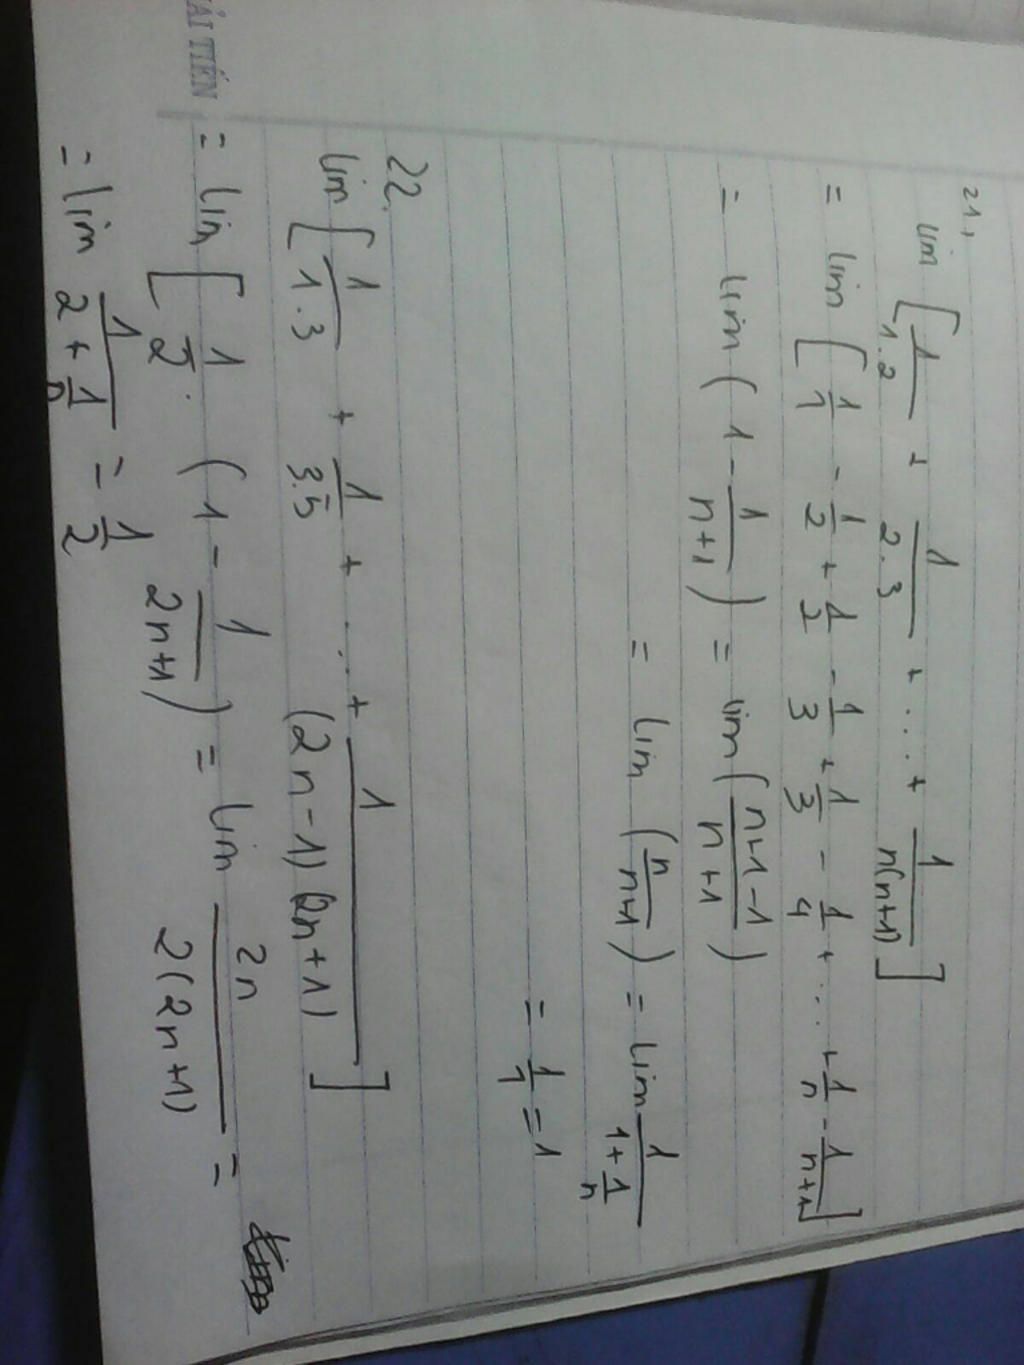 ẢI TIẾN
21,
lim [1/1.2 + 1/2.3 + ... + 1/n(n+1)]
= lim [1/1 - 1/2 + 1/2 - 1/3 + 1/3 - 1/4 + ... + 1/n - 1/n+1]
= lim (1 - 1/n+1) = lim (n+1-1/n+1)
= lim (n/n+1) = lim 1/1+1/n
= 1/1 = 1
22,
lim [1/1.3 + 1/3.5 + ... + 1/(2n-1)(2n+1)]
= lim [1/2 . (1 - 1/2n+1) = lim 2n/2(2n+1) =
= lim 1/2+1/n = 1/2